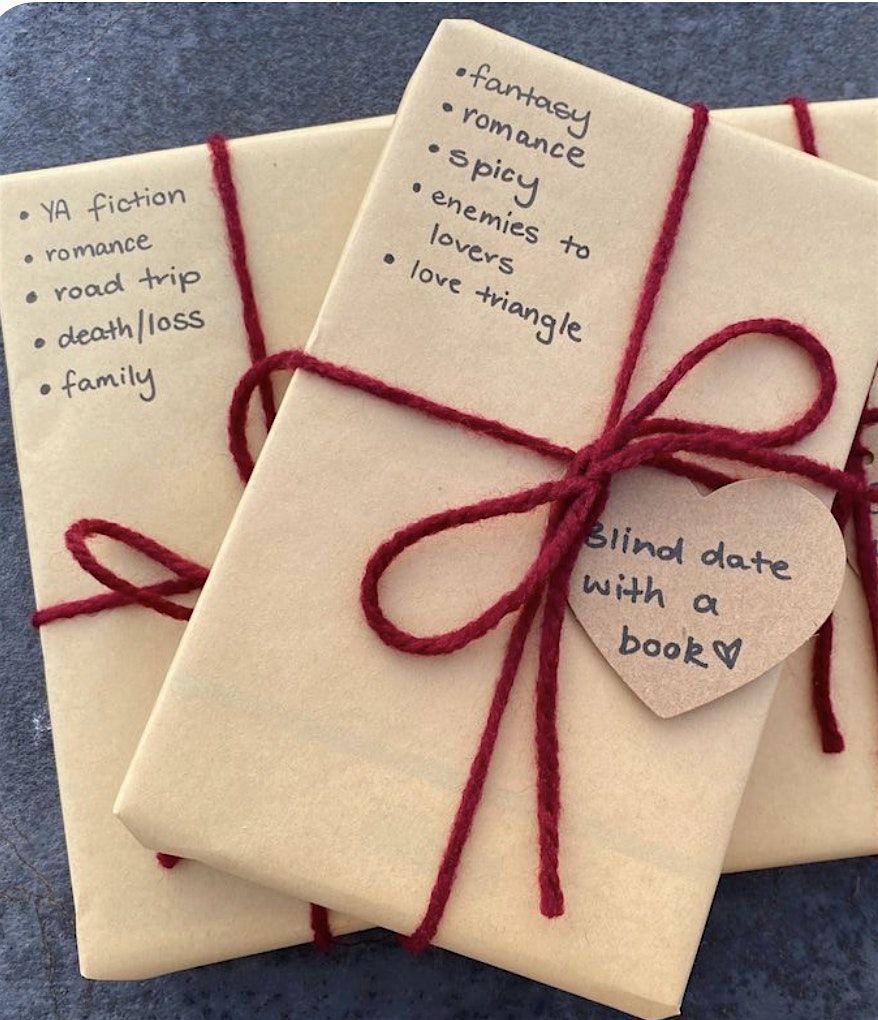 • YA fiction
• romance
• road trip
• death/loss
• family
• fantasy
• romance
• spicy
• enemies to
lovers
• love triangle
Blind date
with a
book♡